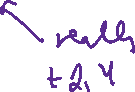 really
t 2, 4